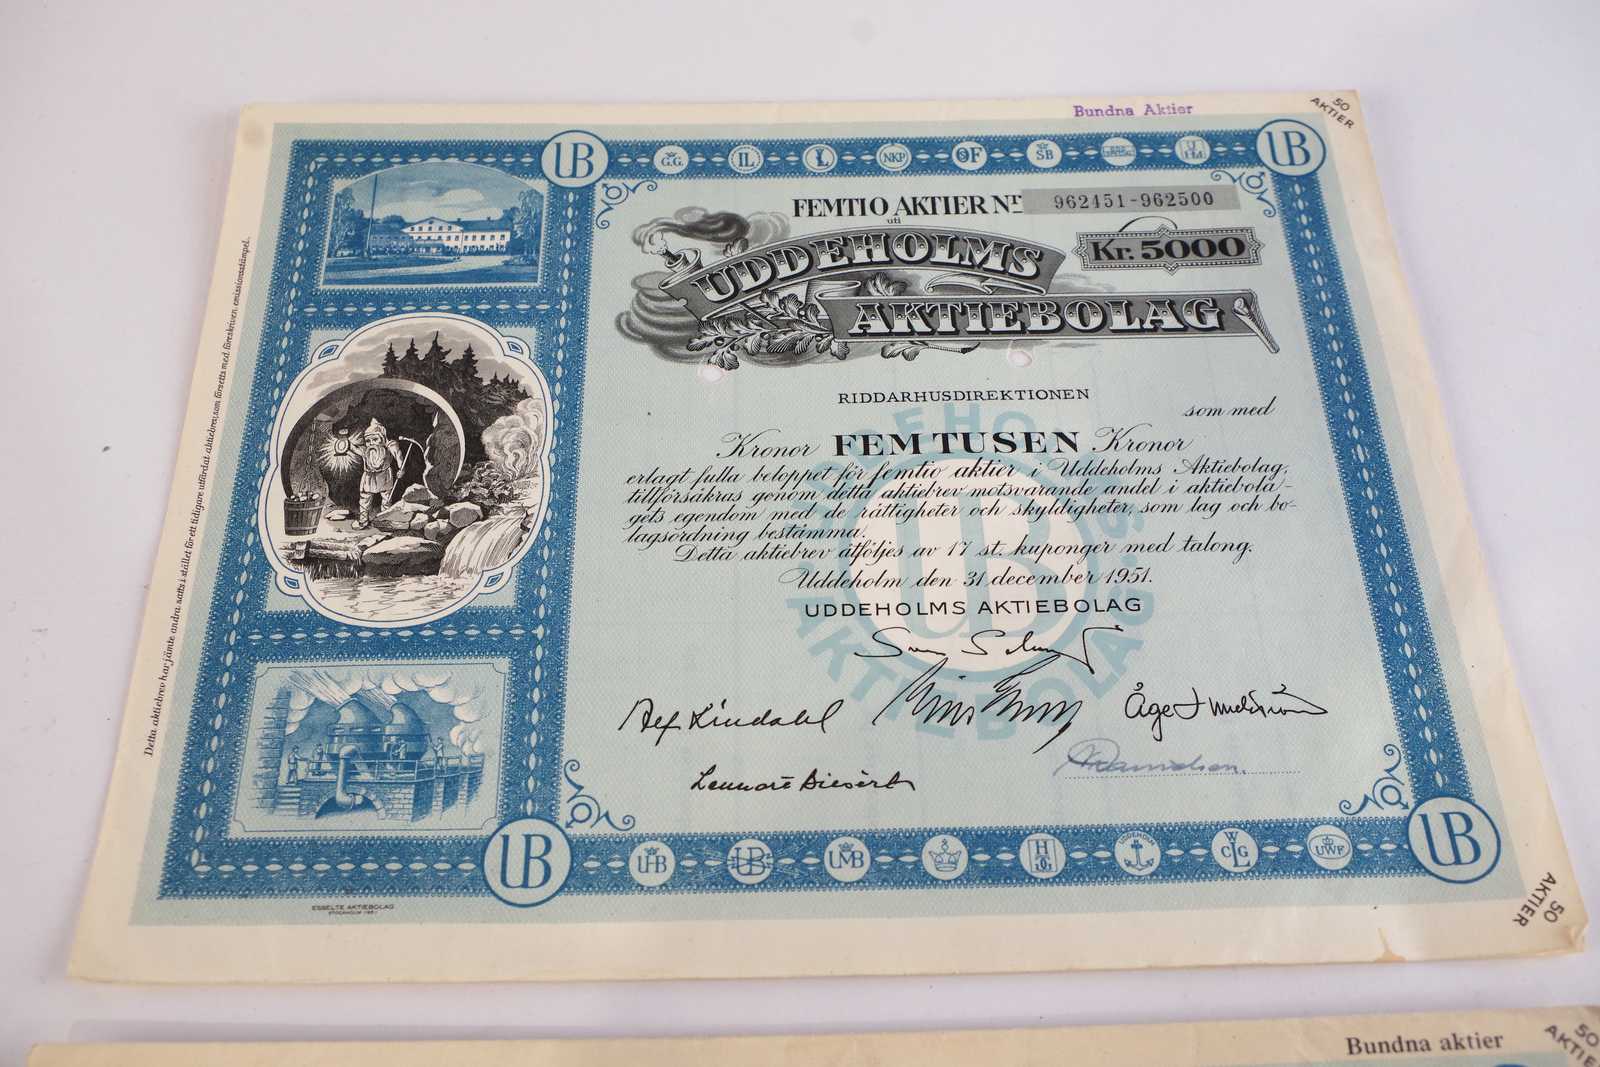 Bundna Aktier
50
AKTIER
UB
G.G.
IL
L
NKP
ÖF
SB
UB
FEMTIO AKTIER Nr 962451-962500
uti
UDDEHOLMS
AKTIEBOLAG
Kr. 5000
RIDDARHUSDIREKTIONEN
som med
Kronor FEM TUSEN Kronor
erlagt fulla beloppet för femtio aktier i Uddeholms Aktiebolag,
tillförsäkras genom detta aktiebrev motsvarande andel i aktiebola-
gets egendom med de rättigheter och skyldigheter, som lag och bo-
lagsordning bestämma.
Detta aktiebrev åtföljes av 17 st. kuponger med talong.
Uddeholm den 31 december 1951.
UDDEHOLMS AKTIEBOLAG
UDDEHOLMS
AKTIEBOLAG
UB
Alf Lindahl
Lennart Diesért
Detta aktiebrev har jämte andra satts i stället för ett tidigare utfärdat aktiebrev, som försetts med föreskriven emissionsstämpel.
UB
UHB
UB
UMB
H
G
UDDEHOLM
W
CLG
UWF
UB
ESSELTE AKTIEBOLAG
STOCKHOLM 1951
50
AKTIER
Bundna aktier
50
AKTIE